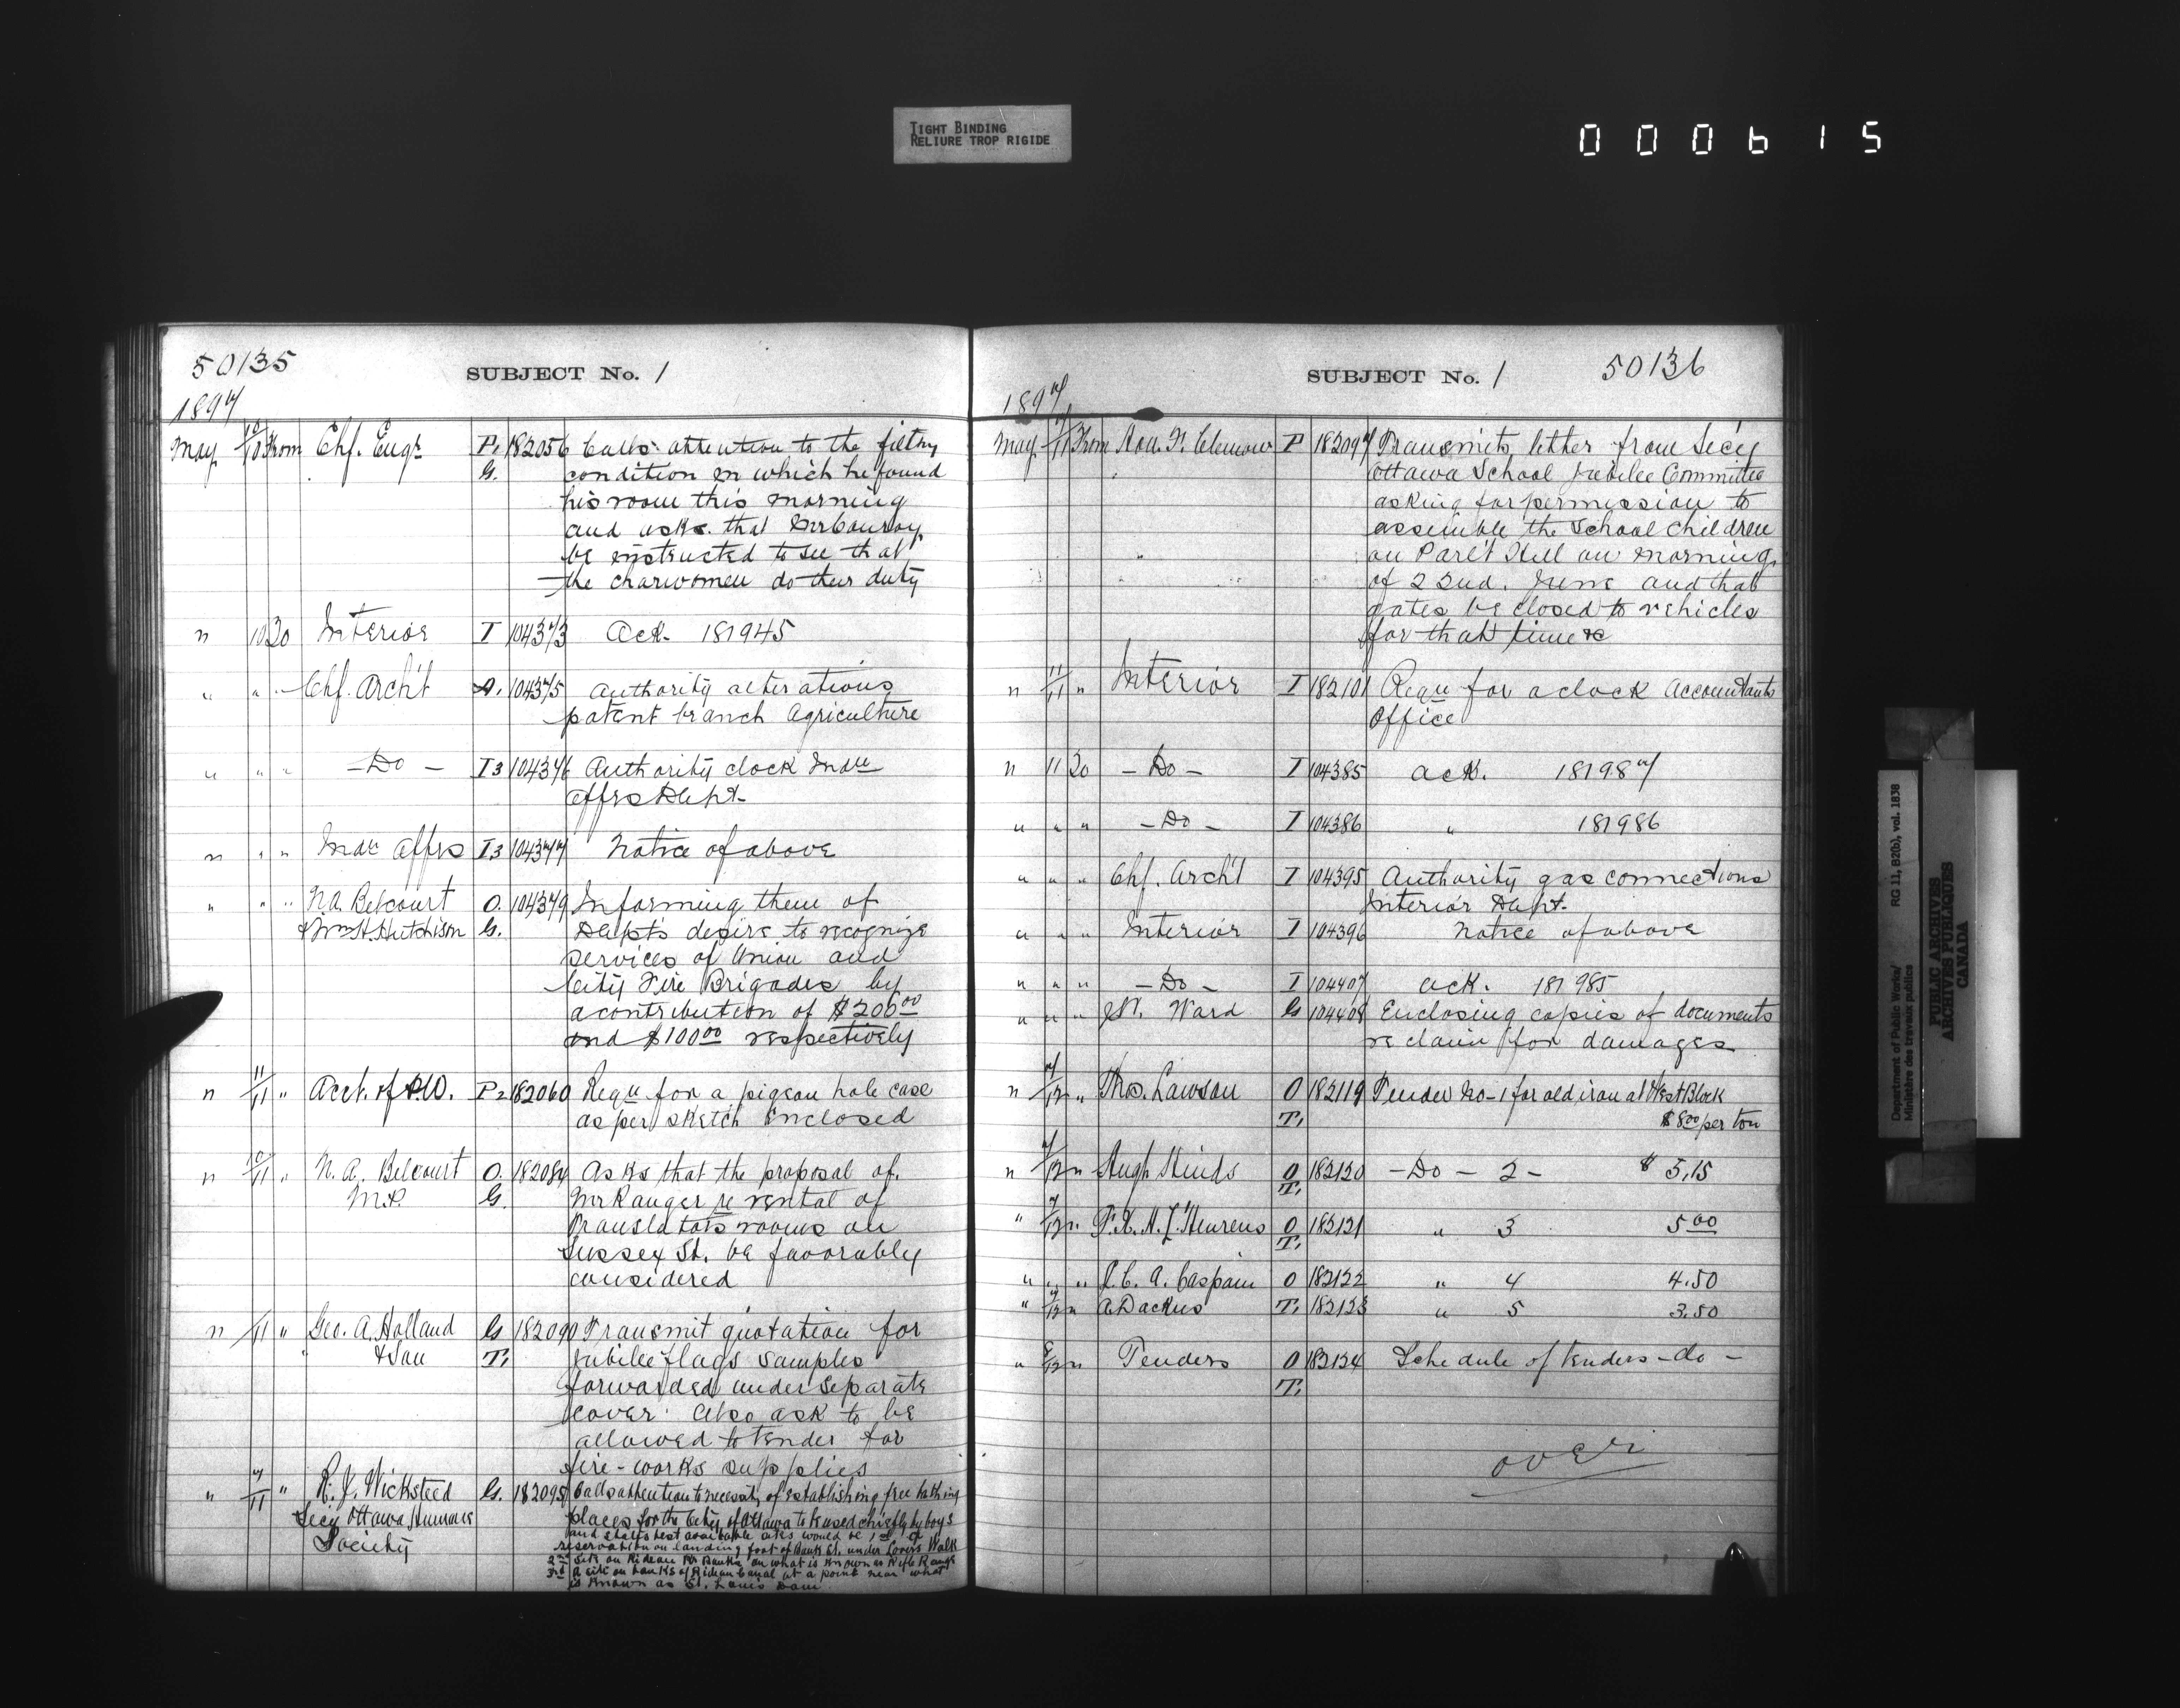 TIGHT BINDING
RELIURE TROP RIGIDE
000615
50135
SUBJECT No. 1
1897
May 10/10 From Chf. Engr P. 182056 Calls attention to the filthy
G. condition in which he found
his room this morning
and asks that Mr Conroy
be instructed to see that
the charwomen do their duty
" 10 20 Interior I 104373 Ack. 181945
" " " Chf. Archt A. 104375 Authority alterations
patent branch Agriculture
" " " - Do - I3 104376 Authority clock Indn
Affrs Dept.
" " " Indn Affrs I3 104377 Notice of above
" " " N.A. Belcourt O. 104379 Informing them of
& Wm H. Hutchison G. Dept's desire to recognize
services of Union and
City Fire Brigades by
a contribution of $200.00
and $100.00 respectively
" 11/11 " Acct. of P.W. P2 182060 Requ for a pigeon hole case
as per sketch enclosed
" 10/11 " N. A. Belcourt O. 182084 Asks that the proposal of
M.P. G. Mr Ranger re rental of
Translators rooms on
Sussex St. be favorably
considered
" /11 " Geo. A. Holland G 182090 Transmit quotation for
& Son T. Jubilee flags samples
forwarded under separate
cover. Also ask to be
allowed to tender for
fire-works supplies
" 7/11 " R. J. Wicksteed G. 182095 Calls attention to necessity of establishing free bathing
Secy Ottawa Humane places for the City of Ottawa to be used chiefly by boys
Society and states best available sites would be 1st of
reservation on landing foot of Bank St. under Lovers Walk
2nd site on Rideau Rr Banks on what is known as Rifle Range
3rd A site on banks of Rideau Canal at a point near what
is known as St. Louis Dam
SUBJECT No. 1
50136
1897
May /11 From Hon. F. Clemow P 182097 Transmits letter from Secy
Ottawa School Jubilee Committee
asking for permission to
assemble the School children
on Parlt Hill on morning
of 22nd. June and that
gates be closed to vehicles
for that time &c
" 11/11 " Interior I 182101 Requ for a clock Accountants
Office
" 11 20 - Do - I 104385 Ack. 181987
" " " - Do - I 104386 " 181986
" " " Chf. Archt I 104395 Authority gas connections
Interior Dept.
" " " Interior I 104396 Notice of above
" " " - Do - I 104407 Ack. 181985
" " " Ward G 104408 Enclosing copies of documents
re claim for damages
" 7/12 " Thos. Lawson O 182119 Tender No-1 for old iron at West Block
T. $8.00 per ton
" 7/12 " Hugh Hinds O 182120 - Do - 2 - $ 5.15
T.
" 7/12 " O 182121 " 3 5.00
T.
" " " J. C. A. Caspain O 182122 " 4 4.50
" 7/12 " A. Dackus T. 182123 " 5 3.50
" 8/12 " Tenders O 182124 Schedule of tenders - do -
T.
over
Department of Public Works/ RG 11, B2(b), vol. 1838
Ministère des travaux publics
PUBLIC ARCHIVES
ARCHIVES PUBLIQUES
CANADA